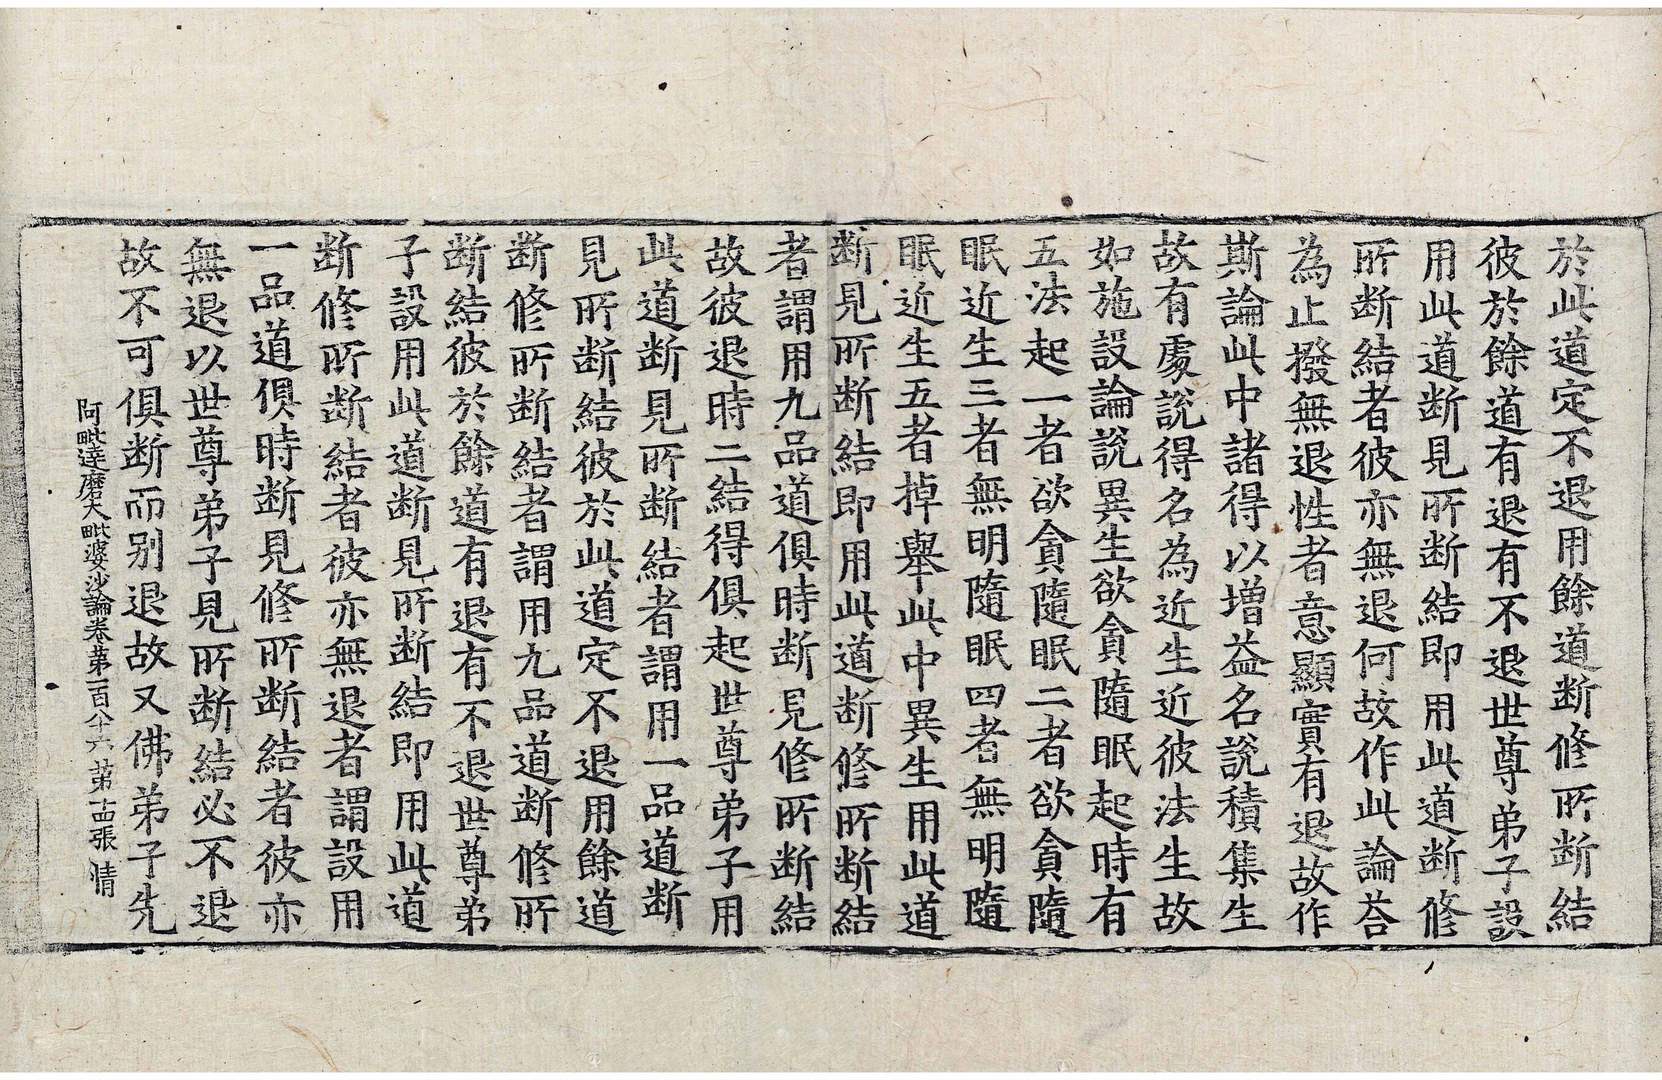 於此道定不退用餘道断修所断結
彼於餘道有退有不退世尊弟子設
用此道断見所断結即用此道断修
所断結者彼亦無退何故作此論荅
為止撥無退性者意顯實有退故作
斯論此中諸得以增益名說積集生
故有處說得名為近生近彼法生故
如施設論說異生欲貪隨眠起時有
五法起一者欲貪隨眠二者欲貪隨
眠近生三者無明隨眠四者無明隨
眠近生五者掉舉此中異生用此道
断見所断結即用此道断修所断結
者謂用九品道俱時断見修所断結
故彼退時二結得俱起世尊弟子用
此道断見所断結者謂用一品道断
見所断結彼於此道定不退用餘道
断修所断結者謂用九品道断修所
断結彼於餘道有退有不退世尊弟
子設用此道断見所断結即用此道
断修所断結者彼亦無退者謂設用
一品道俱時断見修所断結者彼亦
無退以世尊弟子見所断結必不退
故不可俱断而別退故又佛弟子先
阿毗達磨大毗婆沙論卷第一百八十六 第十四張 情